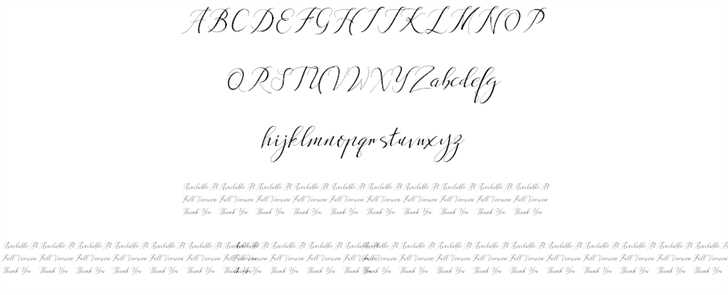 ABCDEFGHIJKLMNOP
QRSTUVWXYZabcdefg
hijklmnopqrstuvwxyz
Available At Available At Available At Available At Available At Available At Available At Available At Available At Available At
Full Version Full Version Full Version Full Version Full Version Full Version Full Version Full Version Full Version Full Version
Thank You Thank You Thank You Thank You Thank You Thank You Thank You Thank You Thank You Thank You
Available At Available At Available At Available At Available At Available At Available At Available At Available At Available At Available At Available At Available At Available At Available At Available At Available At Available At
Full Version Full Version Full Version Full Version Full Version Full Version Full Version Full Version Full Version Full Version Full Version Full Version Full Version Full Version Full Version Full Version Full Version Full Version
Thank You Thank You Thank You Thank You Thank You Thank You Thank You Thank You Thank You Thank You Thank You Thank You Thank You Thank You Thank You Thank You Thank You Thank You